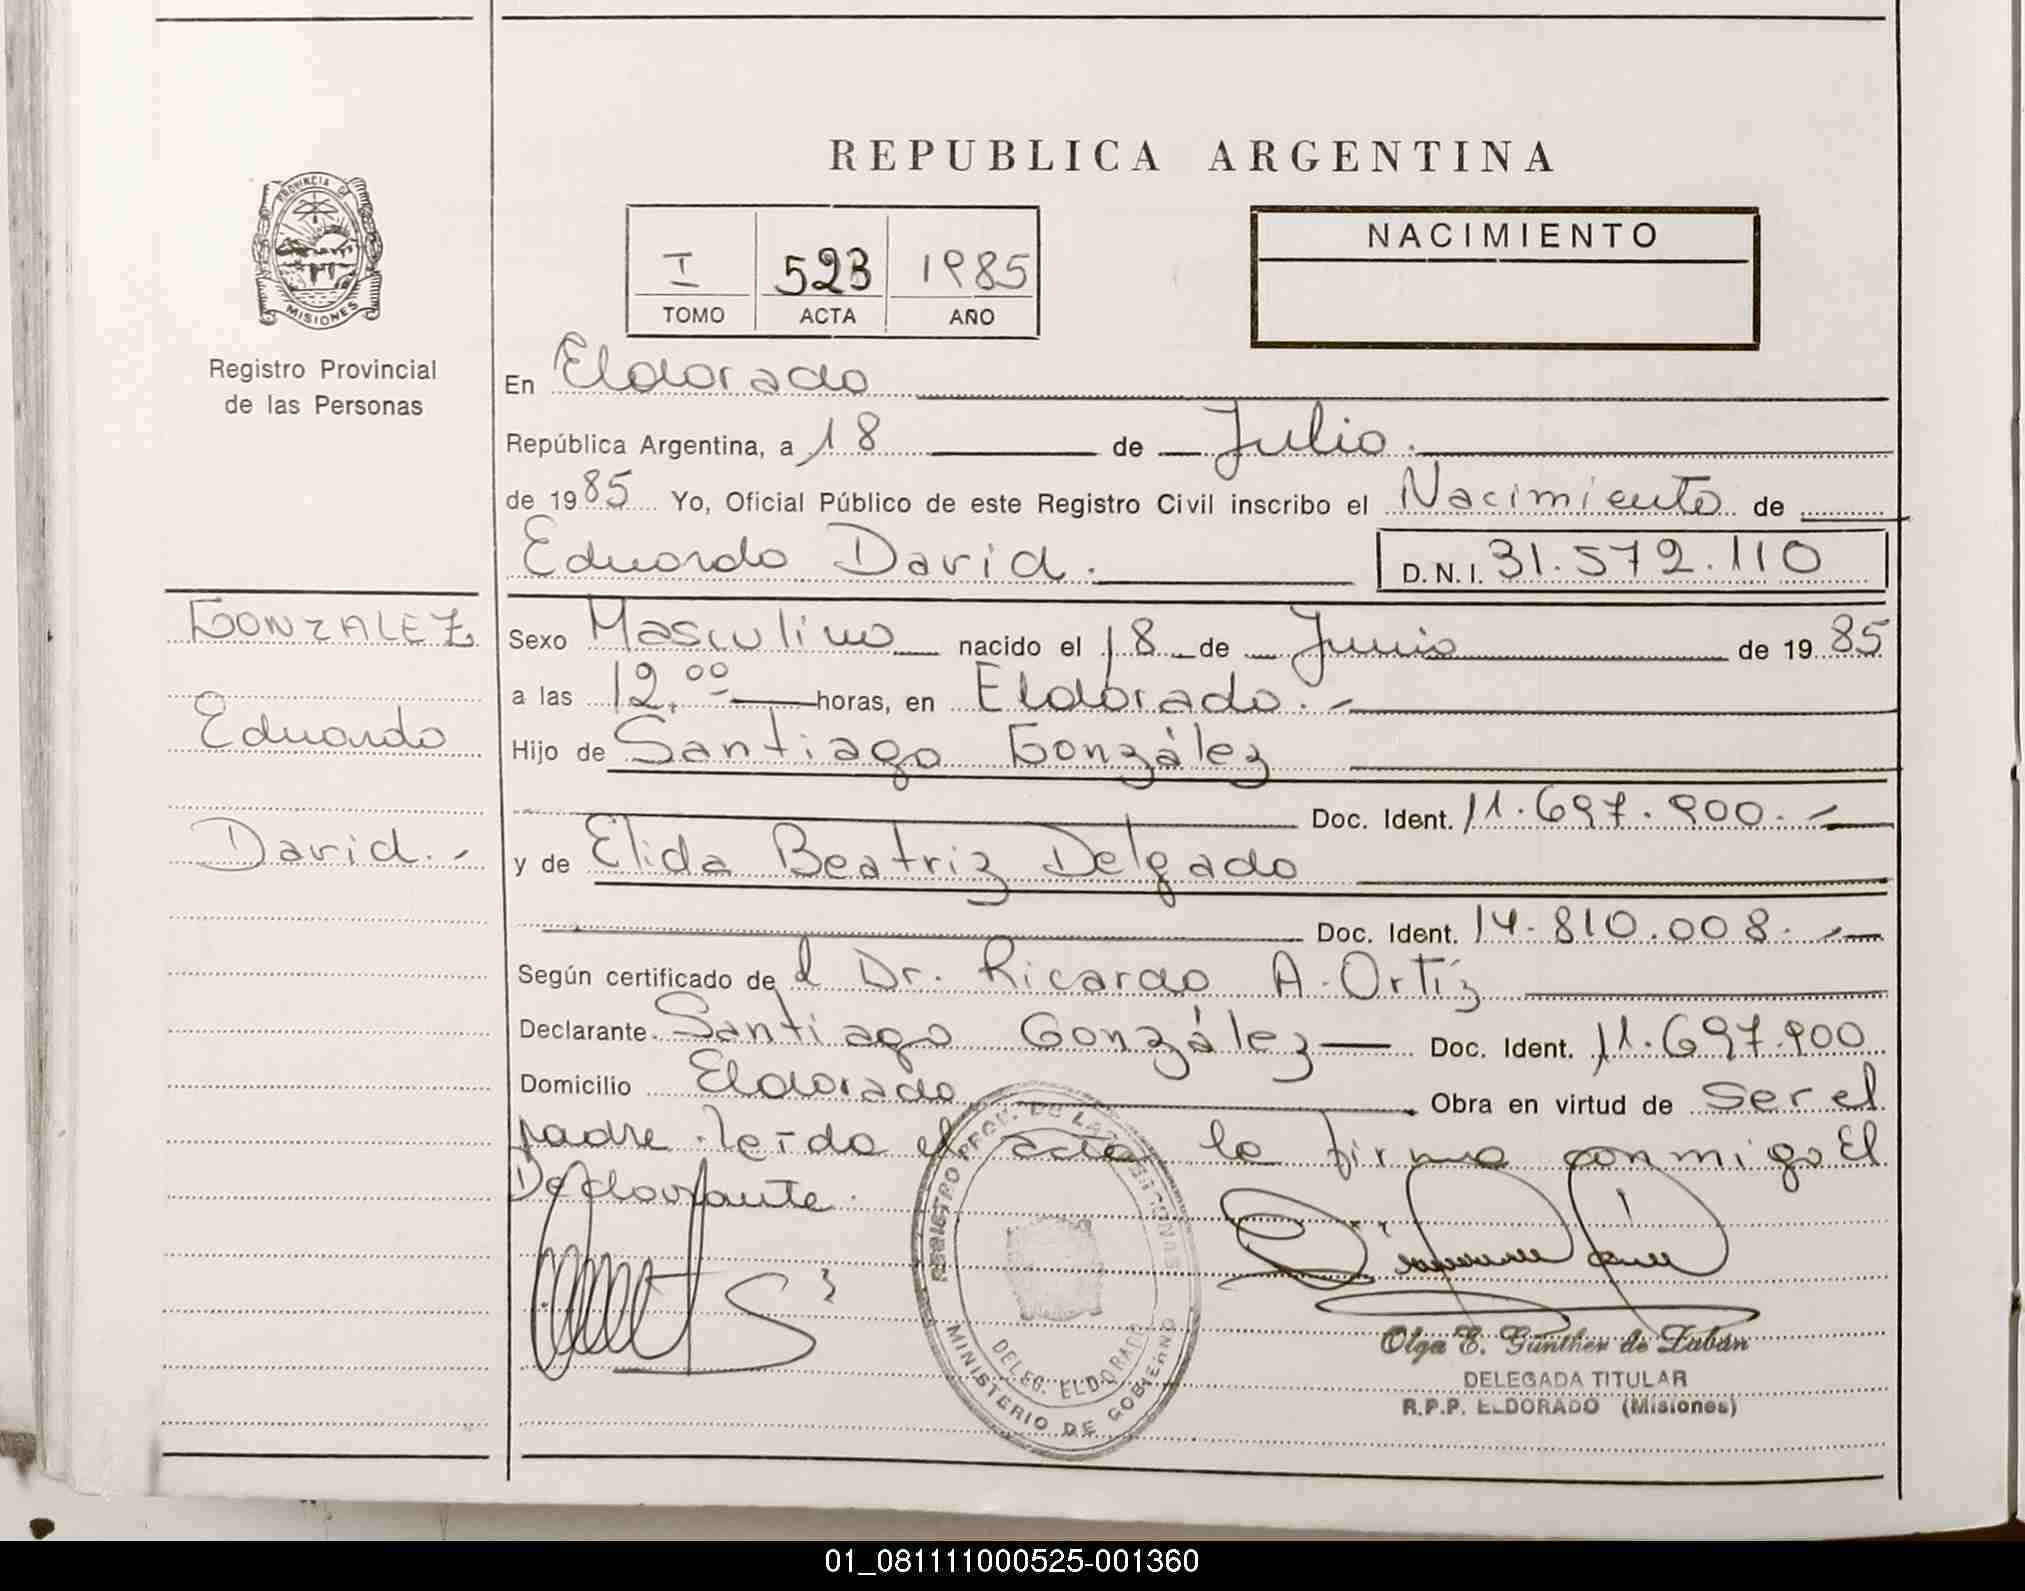 REPUBLICA ARGENTINA
PROVINCIA DE
MISIONES
Registro Provincial
de las Personas
I 523 1985
TOMO ACTA AÑO
NACIMIENTO
En Eldorado
República Argentina, a 18 de Julio.
de 1985 Yo, Oficial Público de este Registro Civil inscribo el Nacimiento de
Eduardo David. D.N.I. 31.572.110
GONZALEZ
Eduardo
David.-
Sexo Masculino nacido el 18 de Junio de 1985
a las 12,00 horas, en Eldorado.-
Hijo de Santiago González
Doc. Ident. 11.697.900.-
y de Elida Beatriz Delgado
Doc. Ident. 14.810.008.-
Según certificado del Dr. Ricardo A. Ortíz
Declarante Santiago González Doc. Ident. 11.697.900
Domicilio Eldorado Obra en virtud de ser el
padre. leído el acta la firma conmigo El
Declarante.
REGISTRO PROV. DE LAS PERSONAS
DELEG. ELDORADO
MINISTERIO DE GOBIERNO
Olga E. Günther de Zubán
DELEGADA TITULAR
R.P.P. ELDORADO (Misiones)
01_081111000525-001360